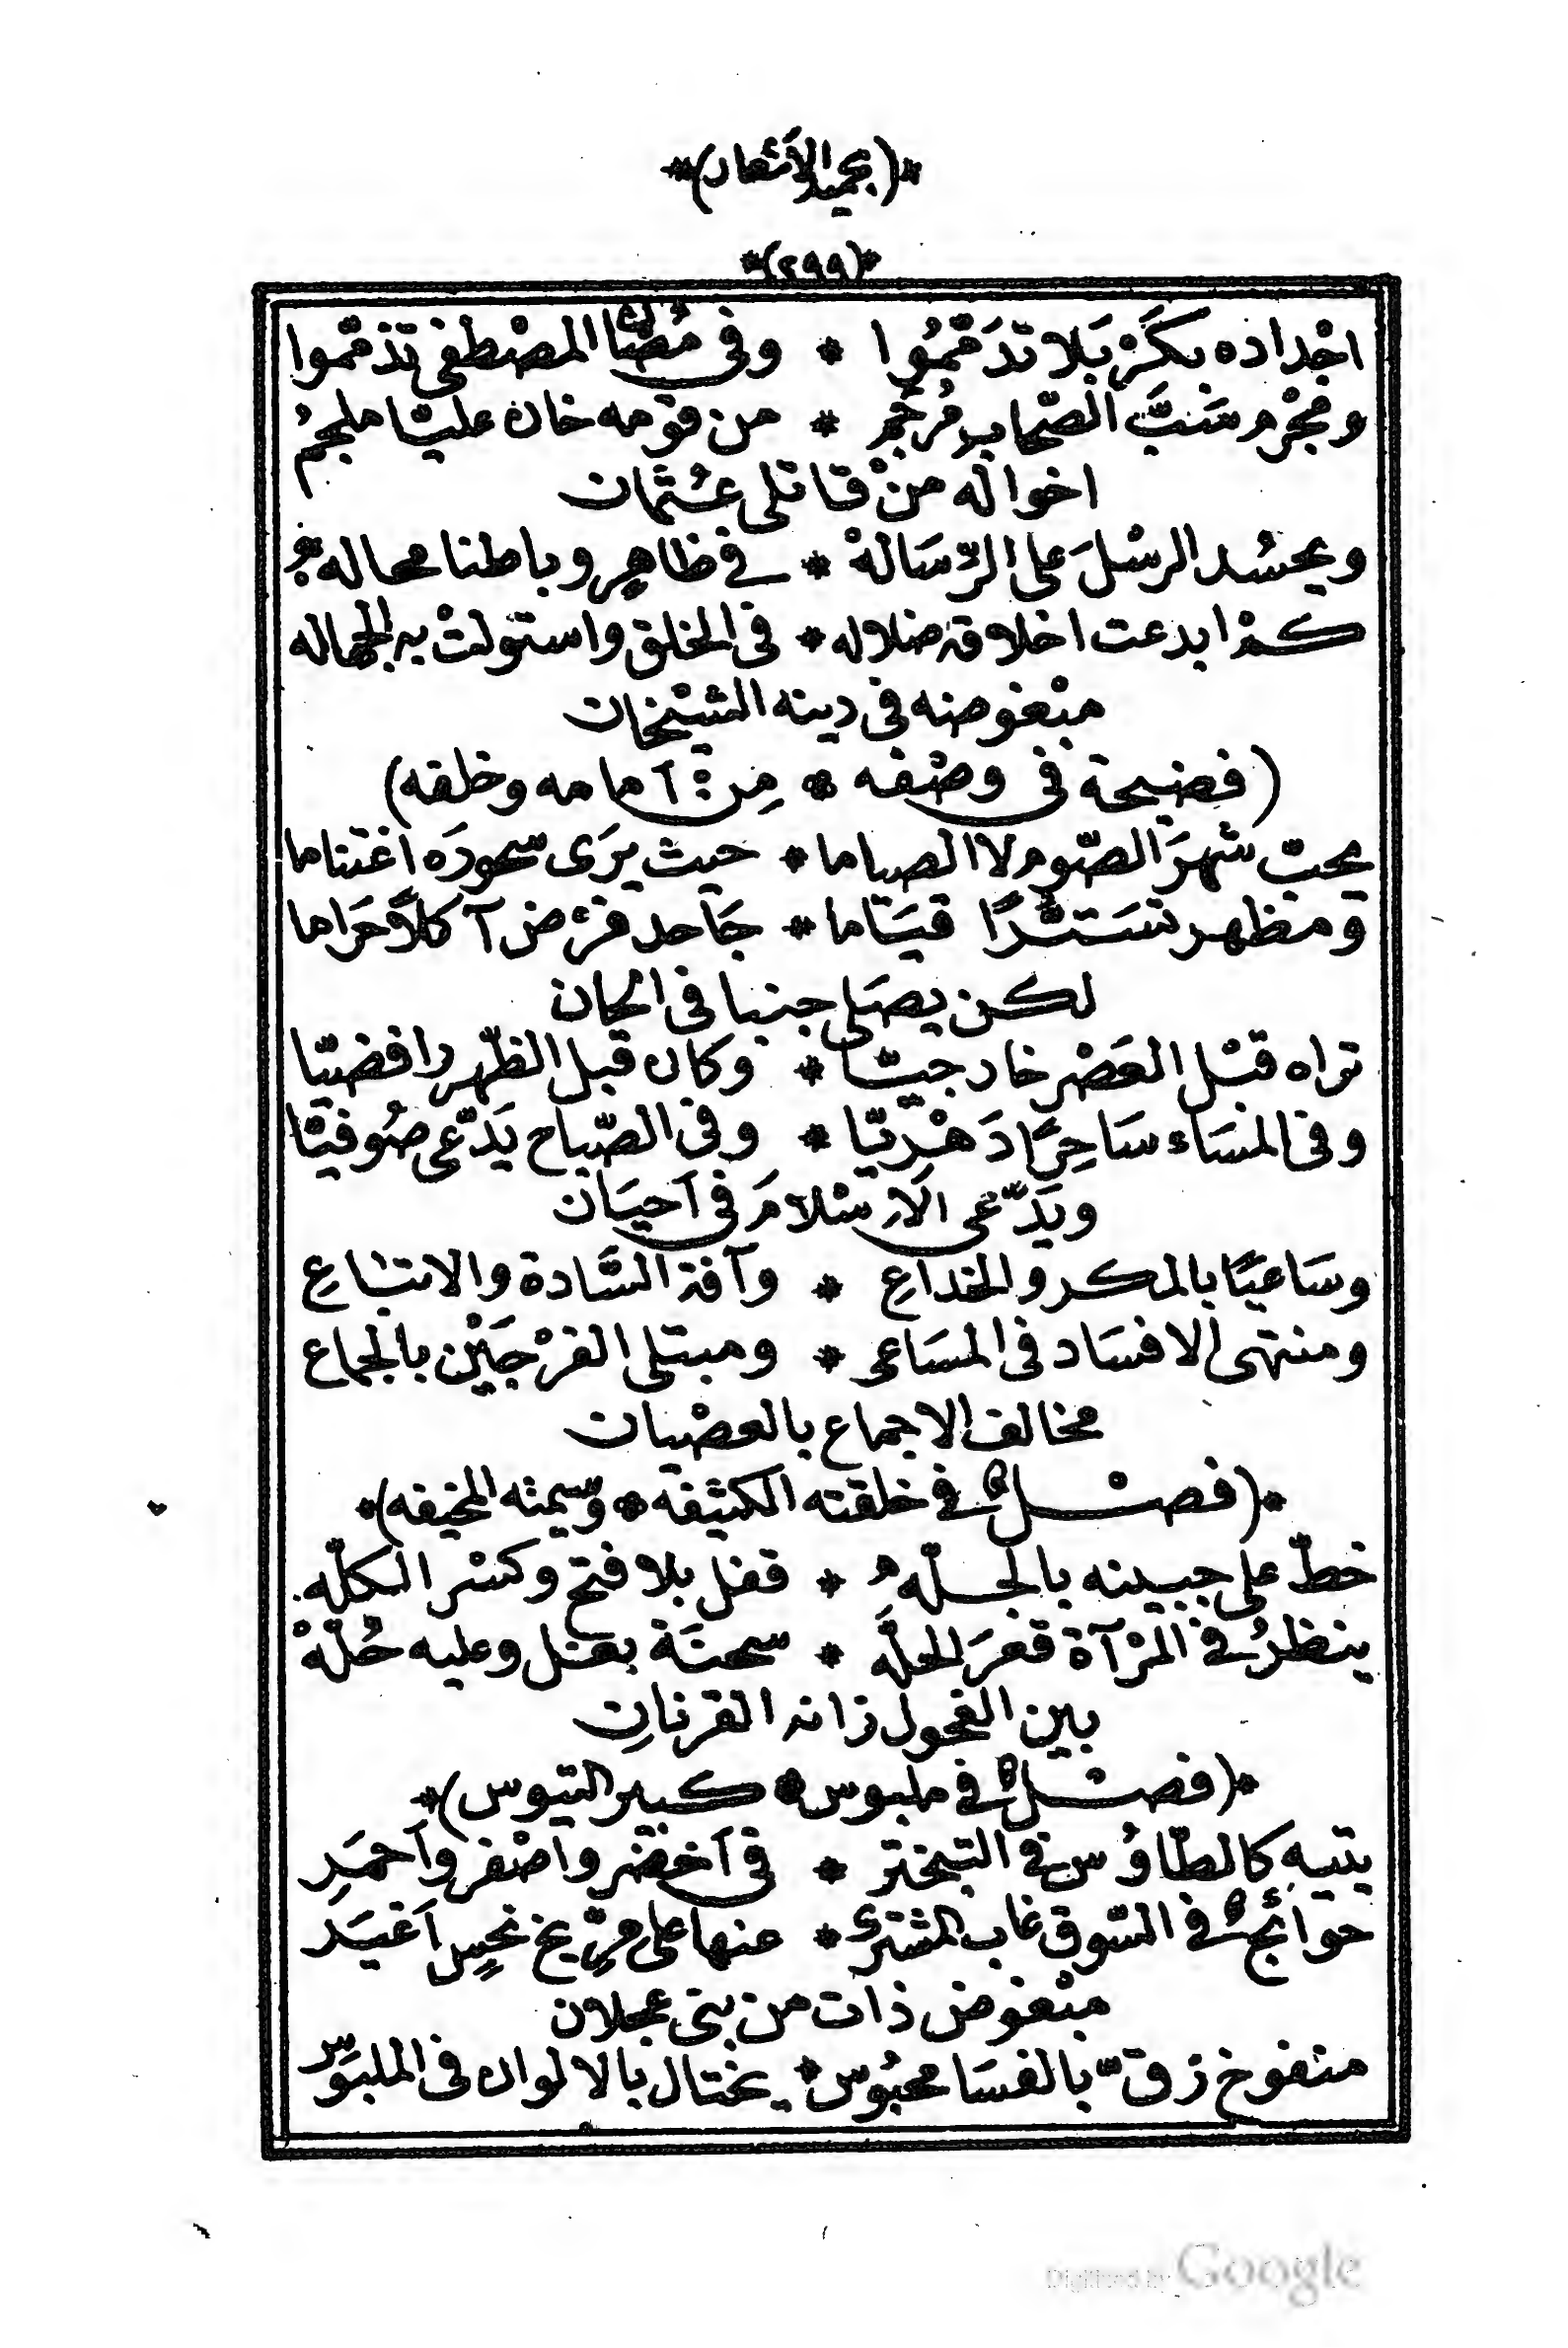 *(بحميد الأشعار)*
*(٢٩٩)*
اجْداده بكَرْبَلا تدَمَّمُوا * وفى مُصَابِ المصْطفى تذمّموا
ومجْرم سَبَّ الصّحاب مُرجم * من قومه خان عليّا ملجمُ
اخواله منْ قاتلى عُثمَان
ويحسُد الرسْلَ على الرّسَالهْ * فى ظاهر وباطنا محاله
كمْ ابدعت اخلاقه ضلاله * فى الخلق واستولتْ به الجهاله
مبْغوضه فى دينه الشيْخان
(فضيحة فى وصْفه * مِن امامه وخلفه)
يحبّ شهرَ الصّوم لا الصياما * حيث يرَى سحورَه اغتناما
ومظهر تسَتّرًا قيَاما * جَاحد فرْض آكلاً حَرَاما
لكن يصَلى جنبا فى الحان
تراه قبْل العَصْر خارجيّا * وكان قبل الظّهر رافضيّا
وفى المسَاء سَاحِرًا دَهْريّا * وفى الصّباح يَدّعى صُوفيّا
ويَدّعى الاِسْلامَ فى اَحيَان
وسَاعيًا بالمكر والخداعِ * وآفة السَّادة والاتباعِ
ومنتهى الافسَاد فى المسَاعى * ومبتلى الفرْجَيْن بالجماع
مخالف الاجماع بالعصْيان
*(فصْــل فى خلقته الكثيفه * وسيمته المخيفه)*
خطّ على جبينه بالجــلّه * قفل بلا فتح وكسْر الكلّه
ينظرُ فى المرْآة قعرَ الحلّه * سحنَة بغل وعليه حُلّهْ
بين الفحول زانه القرنانِ
*(فصْــل فى ملبوس * كبير التيوس)*
يتيه كالطّاوُس فى التبختر * فى اَخضر واصْفر واَحمَرِ
حوائجٌ فى السّوق غاب المشترى * عنها على مرّيخ نحسٍ اَغبَر
مبْغوض ذات من بنى عجلان
منفوخ زقّ بالفسَا محبُوس * يختال بالالوان فى الملبَوس
Digitized by Google